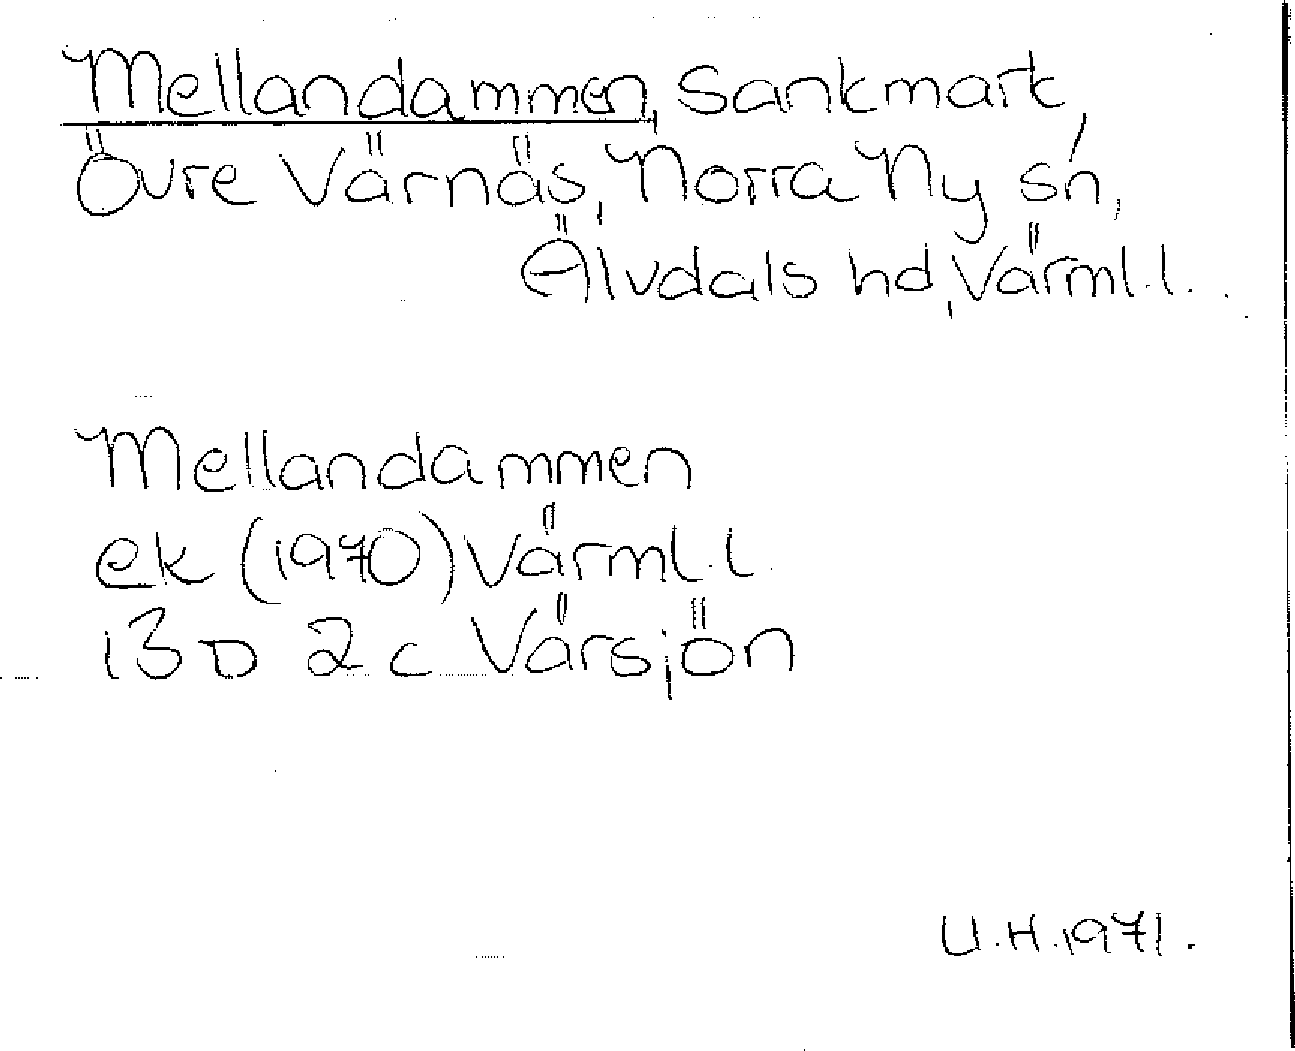 Mellandammen, Sankmark,
Övre Värnäs, Norra Ny sn,
Älvdals hd, Värml.l.
Mellandammen
ek (1970) Värml.l.
13D 2c Värsjön
U.H.1971.